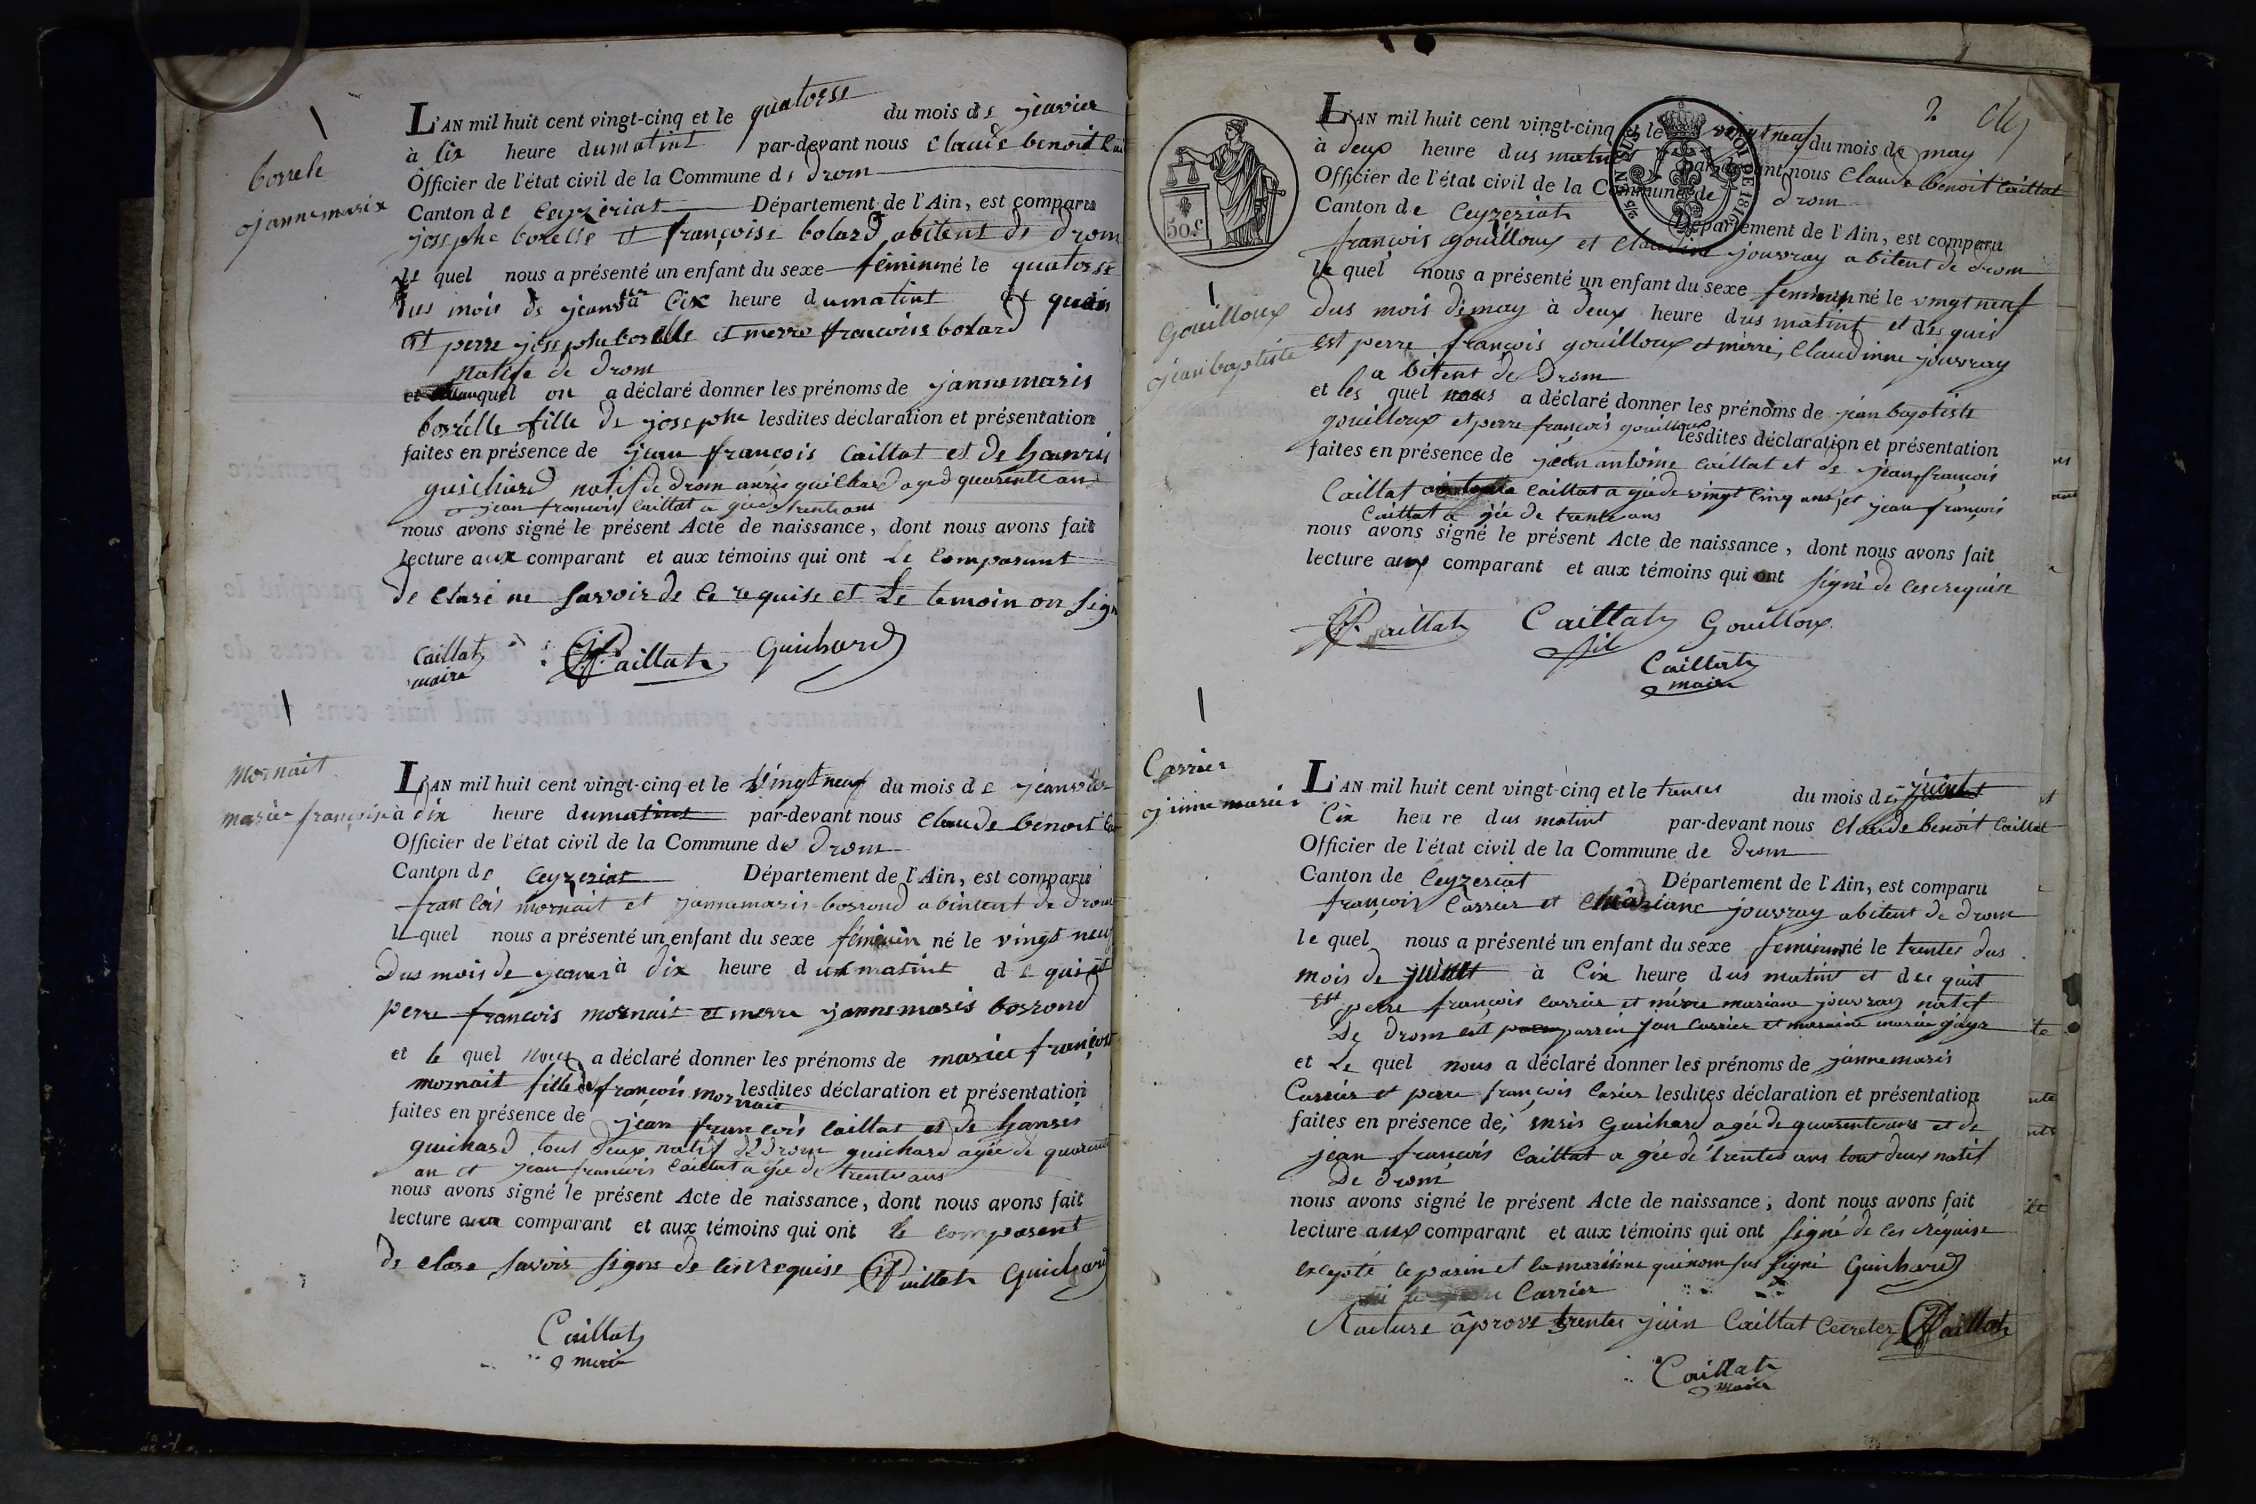 borrele
jannemarie
L'AN mil huit cent vingt-cinq et le quatorse du mois de jeavier
à six heure du matint par-devant nous Claude benoit
Officier de l'état civil de la Commune de drom
Canton de Ceyzeriat Département de l'Ain, est comparu
josephe borelle et françoise bolard abitent de drom
le quel nous a présenté un enfant du sexe féminin né le quatorse
dus mois de jeanvier à six heure du matint et
est perre josephe borelle et merre françoise bolard
natife de drom
et quel on a déclaré donner les prénoms de jannemaris
borelle fille de josephe lesdites déclaration et présentation
faites en présence de jean françois Caillat et de hanris
guichard natif de drom anris guichard aged quarente ans
et jean françois Caillat agée de trente ans
nous avons signé le présent Acte de naissance, dont nous avons fait
lecture aux comparant et aux témoins qui ont Le Comparant
de clare ne savoir de ce requise et Le temoin on signe
Caillat JfCaillat Guichard
maire
mornait
mariee françoise
L'AN mil huit cent vingt-cinq et le Vingt neuf du mois de jeanvier
à dix heure du matint par-devant nous Claude benoit
Officier de l'état civil de la Commune de drom
Canton de Ceyzeriat Département de l'Ain, est comparu
françois mornait et jannemaris borrond abintent de drom
le quel nous a présenté un enfant du sexe féminin né le vingt neuf
Dus mois de janvier à dix heure dus matint de qui est
perre françois mornait et merre jannemaris borrond
et le quel nous a déclaré donner les prénoms de mariee françoise
mornait fille de françois mornait lesdites déclaration et présentation
faites en présence de jéan françois Caillat et de hanris
guichard tous deux natif de drom guichard agée de quarente
an et jean françois Caillat agée de trente ans
nous avons signé le présent Acte de naissance, dont nous avons fait
lecture aux comparant et aux témoins qui ont le comparent
de clare savoir signe de ces requise JfCaillat Guichard
Caillat
maire
2
50 c
LOI DE 1816
L'AN mil huit cent vingt-cinq et le vingt neuf du mois de may
à deux heure dus matint par-devant nous Claude benoit Caillat
Officier de l'état civil de la Commune de drom
Canton de Ceyzeriat Département de l'Ain, est comparu
françois gouilloux et Claudine jouvray abitent de drom
le quel nous a présenté un enfant du sexe feminin né le vingt neuf
Gouilloux
jeanbaptiste
dus mois de may à deux heure dus matint et des quis
est perre françois gouilloux et merre, Claudinne jouvray
a bitent de drom
et les quel nous a déclaré donner les prénoms de jéan baptiste
gouilloux et perre françois gouilloux lesdites déclaration et présentation
faites en présence de jéan antoine Caillat et de jean françois
Caillat Caillat agée de vingt cinq ans et jean françois
Caillat a gée de trente ans
nous avons signé le présent Acte de naissance, dont nous avons fait
lecture aux comparant et aux témoins qui ont signé de ces requise
JfCaillat Caillat Gouilloux
fils
Caillat
maire
Carrier
jannemariee
L'AN mil huit cent vingt-cinq et le trentes du mois de
Cix heure dus matint par-devant nous Claude benoit Caillat
Officier de l'état civil de la Commune de drom
Canton de Ceyzeriat Département de l'Ain, est comparu
françois Carrier et mariane jouvray abitent de drom
le quel nous a présenté un enfant du sexe feminin né le trentes dus
mois de à Cix heure dus matint et des quit
est perre françois Carrier et mérre mariane jouvray natif
de drom est parrein Jan Carrier et maraine mariee
et Le quel nous a déclaré donner les prénoms de jannemaris
Carriér et perre françois Carier lesdites déclaration et présentation
faites en présence de enris Guichard agée de quarente ans et de
jean françois Caillat a gée de trentes ans tout deux natif
de drom
nous avons signé le présent Acte de naissance, dont nous avons fait
lecture aux comparant et aux témoins qui ont signé de ces réquise
excepté le parin et la mariinne Guichard
Carrier
Rature âprove trentes juin Caillat JfCaillat
Caillat
maire